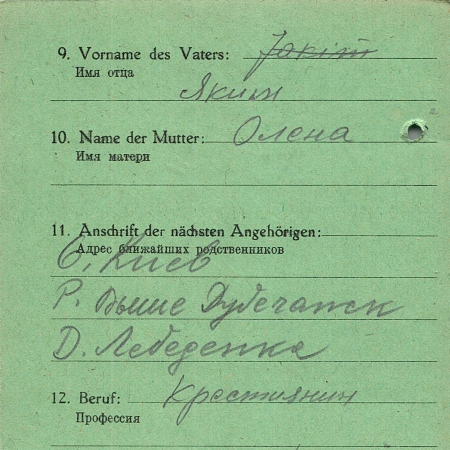 9. Vorname des Vaters: Jakim
Имя отца
Яким
10. Name der Mutter: Олена
Имя матери
11. Anschrift der nächsten Angehörigen:
Адрес ближайших родственников
О. Киев
Р. Выше Дубечанск
Д. Лебеденка
12. Beruf: Крестиянин
Профессия